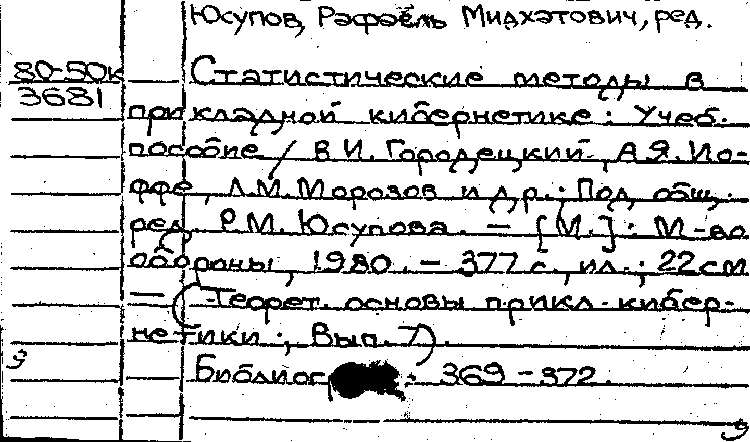 Юсупов, Рафаэль Мидхатович, ред.
80-50к
3681
Статистические методы в
прикладной кибернетике : Учеб.
пособие / В.И. Городецкий, А.Я. Ио-
ффе, Л.М. Морозов и др. ; Под общ.
ред. Р.М. Юсупова. — [М.] : М-во
обороны, 1980. — 377 с., ил. ; 22 см
— (Теорет. основы прикл. кибер-
нетики ; Вып. 7).
Библиогр : 369-372.